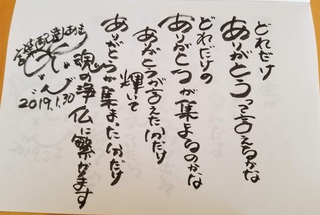 どれだけ
ありがとうって言えるかな
どれだけの
ありがとうが集まるのかな
ありがとうが言えた分だけ
輝いて
ありがとうが集まった分だけ
魂の浄仏に繋がります
2019.1.30